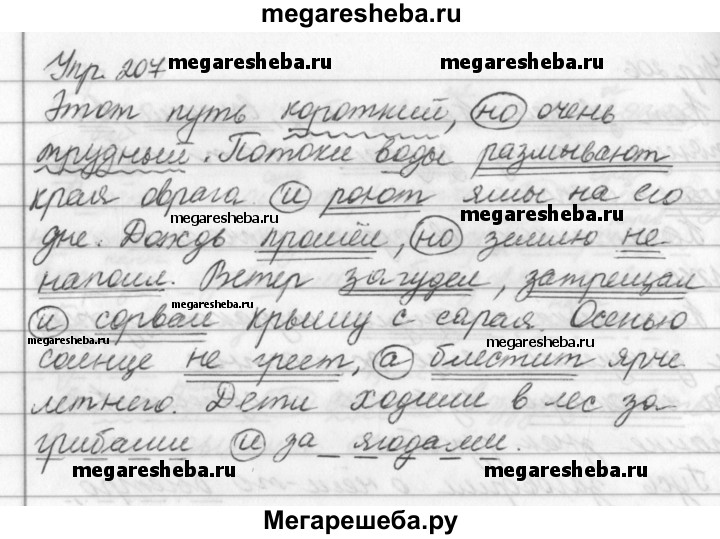 megaresheba.ru
Упр. 207 megaresheba.ru megaresheba.ru
Этот путь короткий, но очень
трудный. Потоки воды размывают
края оврага и роют ямы на его
megaresheba.ru megaresheba.ru
дне. Дождь прошёл, но землю не
напоил. Ветер загудел, затрещал
megaresheba.ru
и сорвал крышу с сарая. Осенью
megaresheba.ru megaresheba.ru
солнце не греет, а блестит ярче
летнего. Дети ходили в лес за
грибами и за ягодами.
megaresheba.ru megaresheba.ru
Мегарешеба.ру